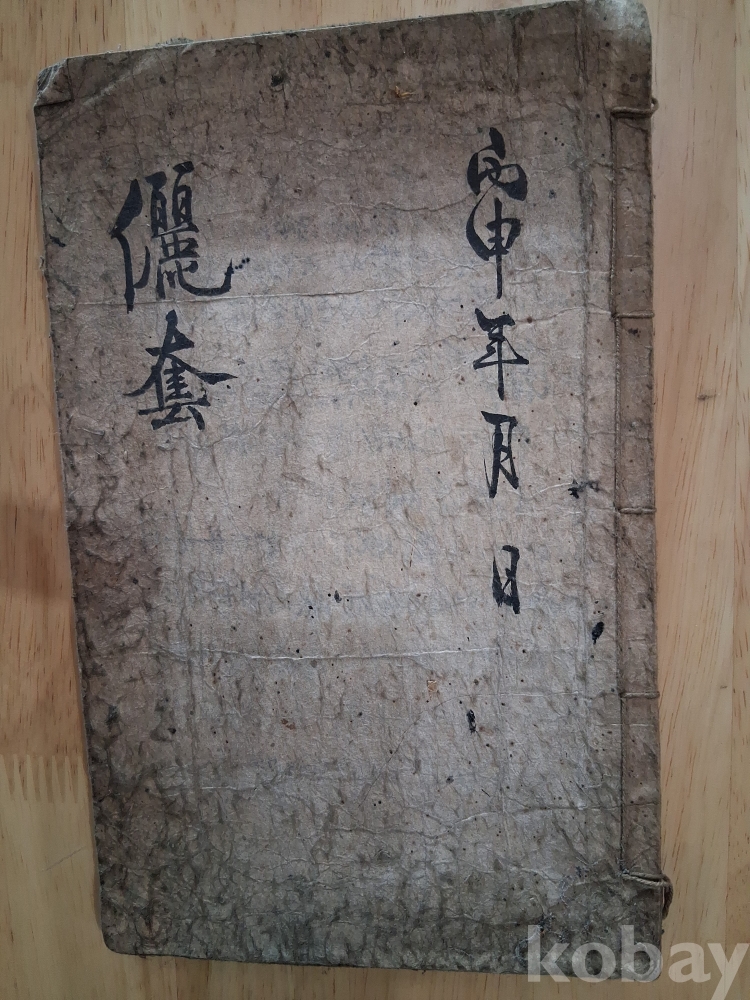 丙申年 月 日
儷套
kobay